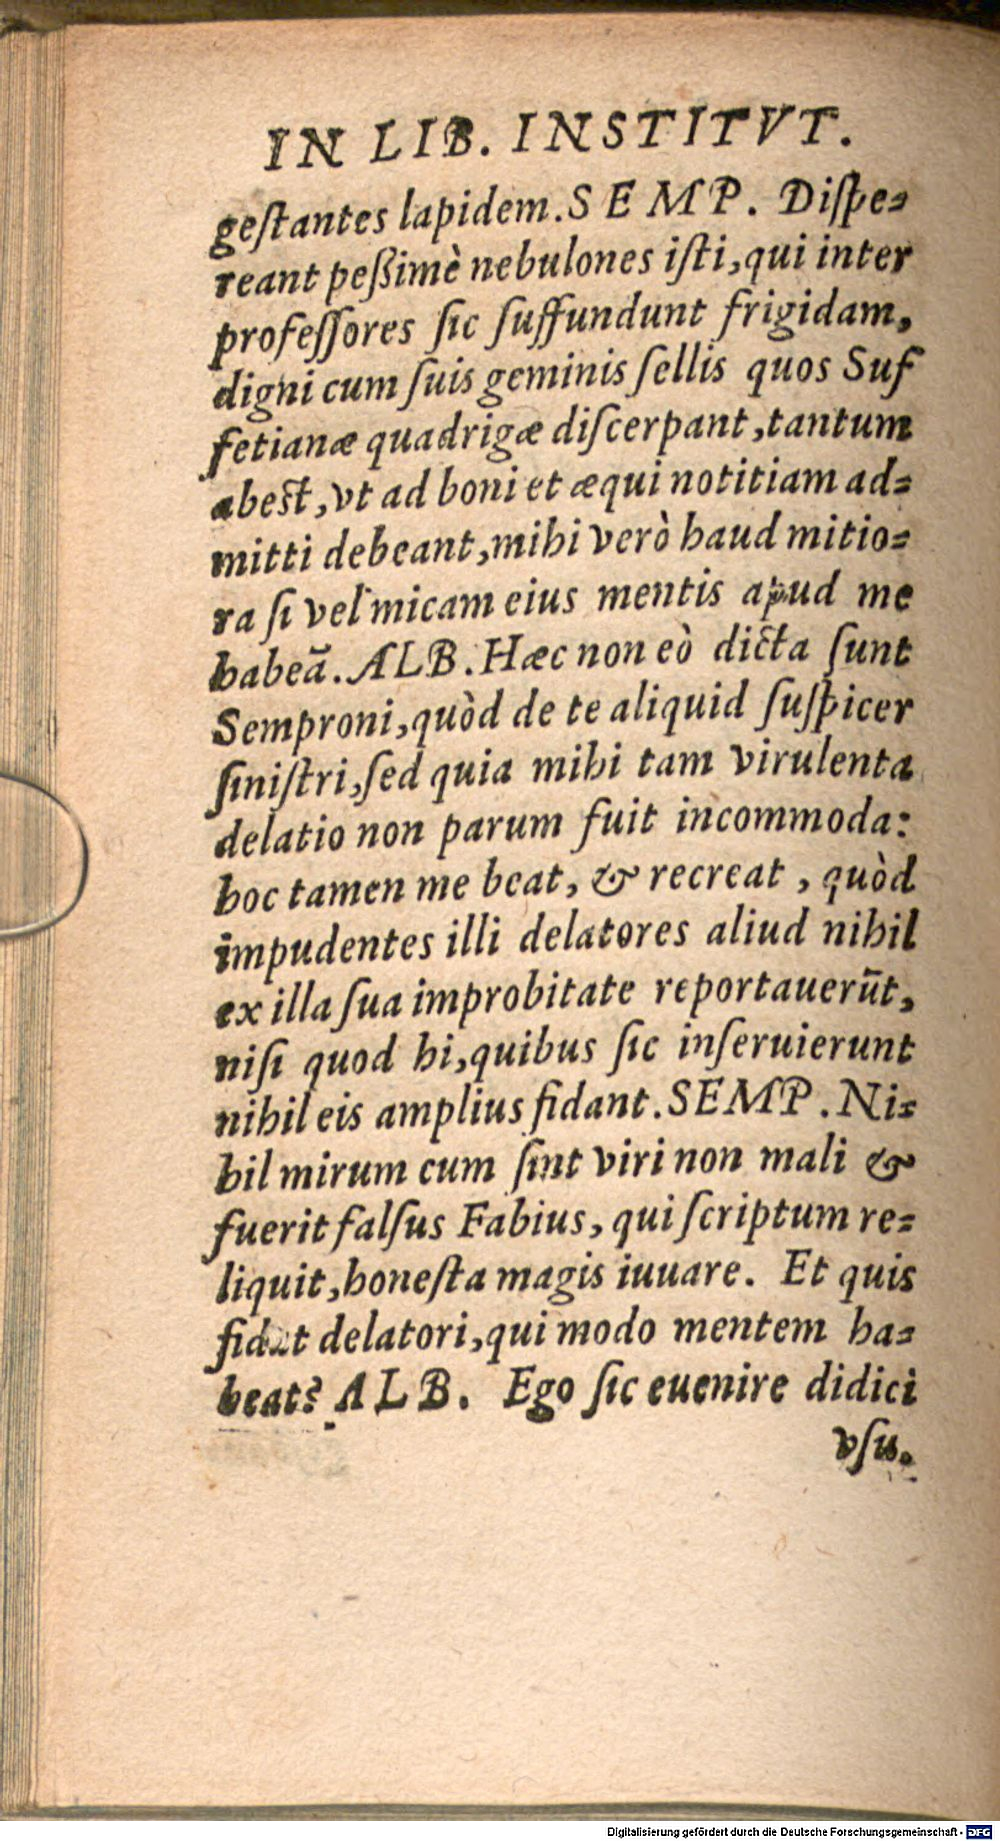 IN LIB. INSTITVT.
geſtantes lapidem. SEMP. Diſpe-
reant peßimè nebulones iſti, qui inter
profeſſores ſic ſuffundunt frigidam,
digni cum ſuis geminis ſellis quos Suf
fetianæ quadrigæ diſcerpant, tantum
abest, vt ad boni et æqui notitiam ad-
mitti debeant, mihi verò haud mitio-
ra ſi vel micam eius mentis apud me
habeā. ALB. Hæc non eò dicta ſunt
Semproni, quòd de te aliquid ſuſpicer
ſiniſtri, ſed quia mihi tam virulenta
delatio non parum fuit incommoda:
hoc tamen me beat, & recreat, quòd
impudentes illi delatores aliud nihil
ex illa ſua improbitate reportauerūt,
niſi quod hi, quibus ſic inſeruierunt
nihil eis amplius fidant. SEMP. Ni-
hil mirum cum ſint viri non mali &
fuerit falſus Fabius, qui ſcriptum re-
liquit, honeſta magis iuuare. Et quis
delatori, qui modo mentem ha-
beat? ALB. Ego ſic euenire didici
vſu.
Digitalisierung gefördert durch die Deutsche Forschungsgemeinschaft - DFG